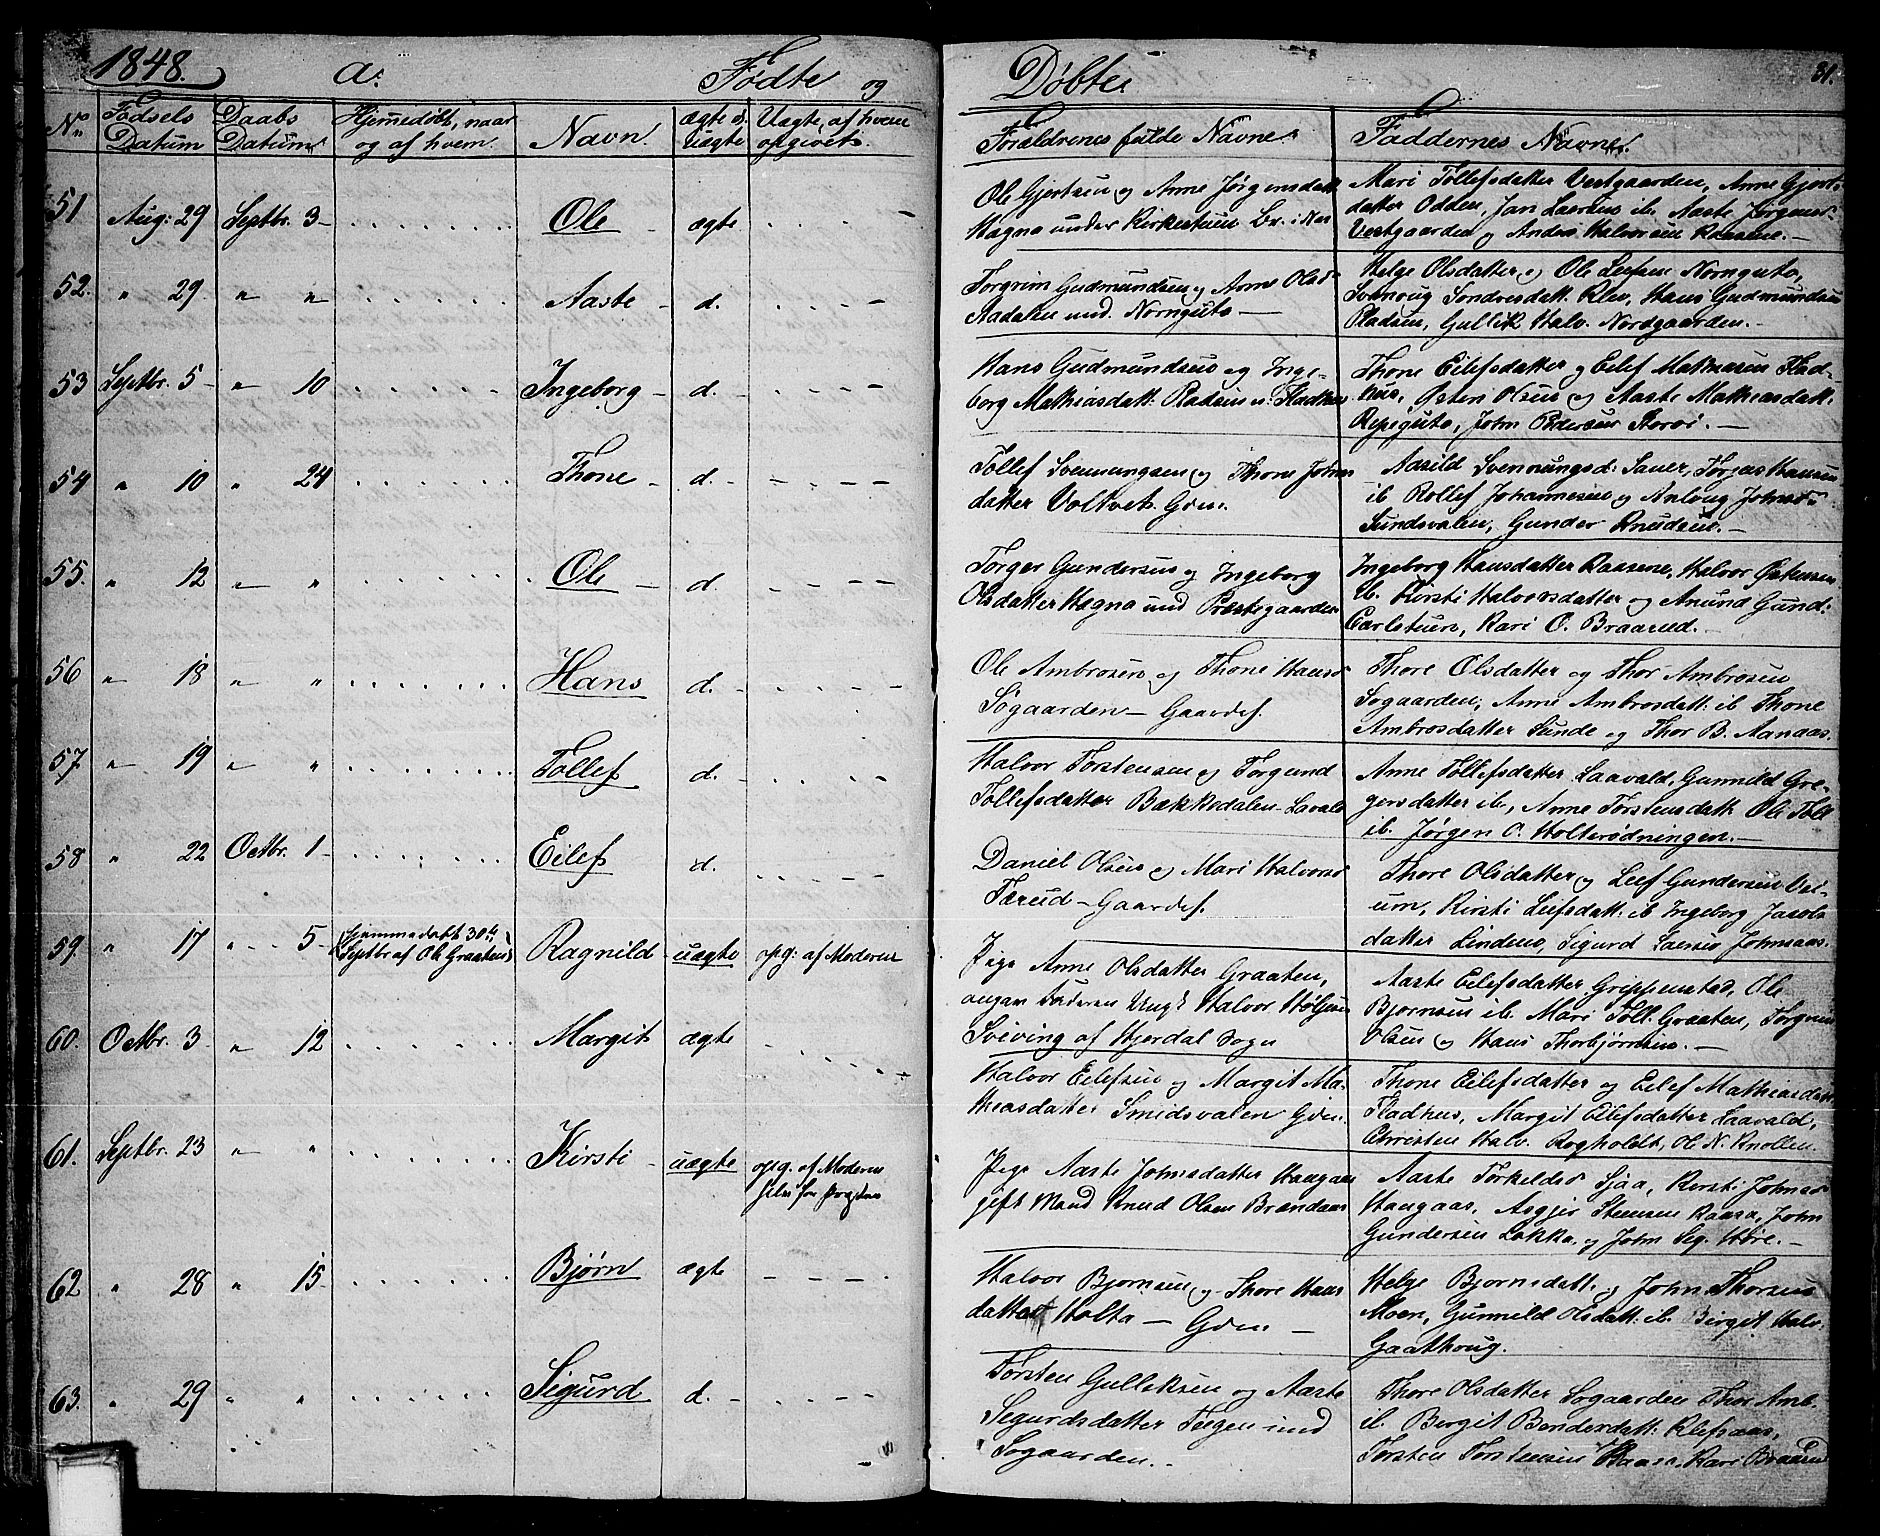 1848. a. Fødte og Døbte 31.
No Fødsels Datum Daabs Datum Hjemmedøbt, naar og af hvem. Navn. ægte el. Uægte Uægte, af hvem opgivet. Forældrenes fulde Navne. Faddernes Navne.
51 Aug: 29 Septbr. 3 Ole ægte
Ole Gjertsen og Anne Jørgensdatt
Hagna under Kirkestuen
Mari Tollefsdatter Vestgaarden, Anne Gjerts
datter Odden, Jan Larsen ib. Aaste Jørgensd
Vestgaarden og Anders Halvorsen Raasene.
52. " 29 " " Aaste d.
Torgrim Gudmundsen og Anne Olsd
Aadalen und. Nornguto
Helge Olsdatter og Ole Leifsen Nornguto,
Svenoug Sondresdatt. Klev, Hans Gudmundsen
Pladsen, Gullik Halv. Nordgaarden.
53 Septbr. 5 " 10 Ingeborg d.
Hans Gudmundsen og Inge-
borg Mathiasdatt: Pladsen u: Fladhus
Thone Eilefsdatter og Eilef Mathiasen Flad-
hus, Østen Olsen og Aaste Mathiasdatt.
Rypeguto, John Pedersen Storøi.
54 " 10 " 24 Thone d.
Tollef Svennungsen og Thone Johns
datter Voltvet. Gden.
Aasild Svennungsd: Sauer, Torjus Hansen
ib Rollef Johannesen og Anloug Johnsd
Sundsvalen, Gunder Knudsen.
55. " 12 " " Ole d.
Torger Gundersen og Ingeborg
Olsdatter Hagna und Præstegaarden
Ingeborg Hansdatter Raasene, Halvor
ib. Kirsti Halvorsdatter og Anund Gund:
Carlstuen, Kari O. Braarud.
56 " 18 " " Hans d.
Ole Ambrosen og Thone Hansd
Søgaarden Gaardef.
Thore Olsdatter og Thor Ambrosen
Søgaarden, Anne Ambrosdatt: ib Thone
Ambrosdatter Sunde og Thor B. Aanaas.
57 " 19 " " Tollef d.
Halvor Torstensen og Torgund
Tollefsdatter Bækkedalen Lavald
Anne Tollefsdatter Laavald, Gunnild Gre-
gersdatter ib, Anne Torstensdatt. Ole Toll.
ib. Jørgen O. Holterødningen.
58 " 22 Octbr. 1 Eilef d.
Daniel Olsen og Mari Halvorsd
Tærud Gaardef.
Thore Olsdatter og Leef Gundersen Vei-
um, Kirsti Leifsdatt: ib Ingeborg Jacobs
datter Lindem, Sigurd Larsen Johnsaas.
59. " 17 " 5 Hjemmedøbt 30te Septbr af Ole Graaten Ragnild uægte opg: af Moderen
Pige Anne Olsdatter Graaten,
angav Faderen Ungk: Halvor Høljesen
Sviving af Hjerdal Sogn
Aaste Eilefsdatter Grippenstad, Ole
Bjornsen ib. Mari Toll: Graaten, Torgrim
Olsen og Hans Thorbjørnsen.
60. Octbr. 3 " 12 Margit ægte
Halvor Eilefsen og Margit Ma-
thiasdatter Smidsvalen Gden.
Thone Eilefsdatter og Eilef Mathiasen
Fladhus, Margit Eilefsdatter Laavald,
Christen Halv. Rogholdt, Ole N. Knollen.
61. Septbr. 23 " " Kirsti uægte opg. af Moderen
Pige Aaste Johnsdatter Haugaas
gift Mand Knud Olsen Brendaas
Aaste Torkeldsd Sjaa, Kirsti Johnsd
Haugaas, Asgjer Stensen Raasa, John
Gundersen Løkka, og John Sig. Høre.
62 " 28 " 15 Bjørn ægte
Halvor Bjornsen og Thore Hans
datter Holta Gden
Helge Bjornsdatt: og John Thorsen
Moen, Gunnild Olsdatt: ib. Birgit Halv.
Gaathoug.
63. " 29 " " Sigurd d.
Torsten Gulleksen og Aaste
Segurdsdatter Teigen und
Søgaarden.
Thore Olsdatter Søgaarden Thor Amb.
ib. Bergit Bendixdatt: Klefsaas,
Torsten Torstensen Kari Braarud